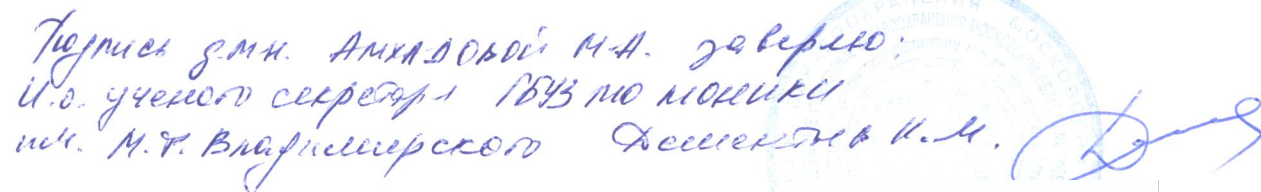 Подпись д.м.н. Амхадовой М.А. заверяю:
И.о. ученого секретаря ГБУЗ МО МОНИКИ
им. М.Ф. Владимирского Дементьев И.М.